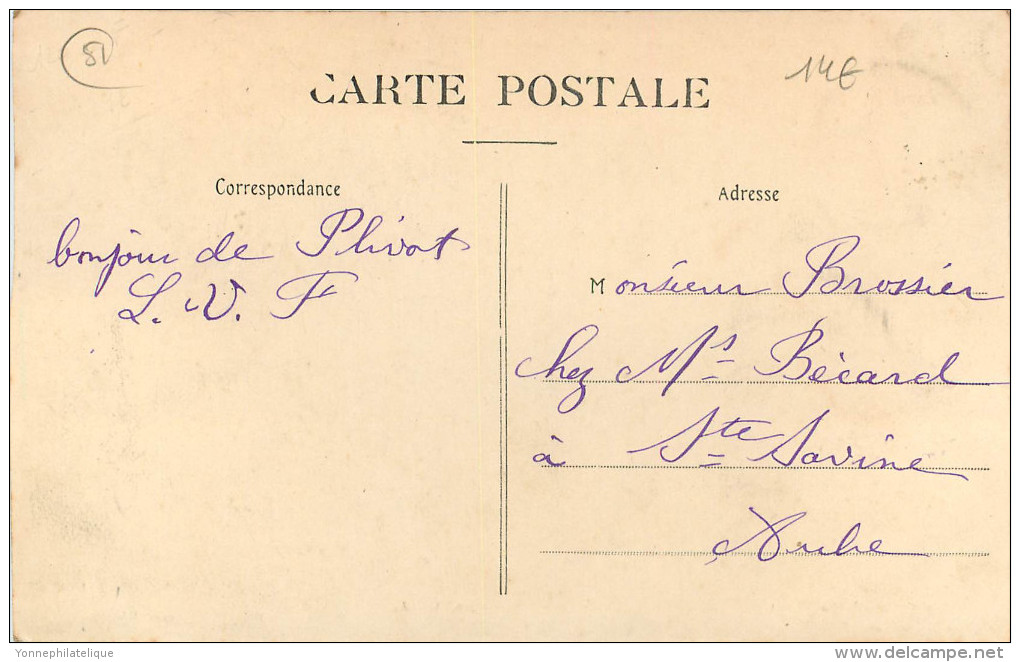 51
14€
CARTE POSTALE
Correspondance
bonjour de Plivot
L. V. F
Adresse
Monsieur Brossier
chez Mrs Bécard
à Ste Savine
Aube
Yonnephilatelique
www.delcampe.net